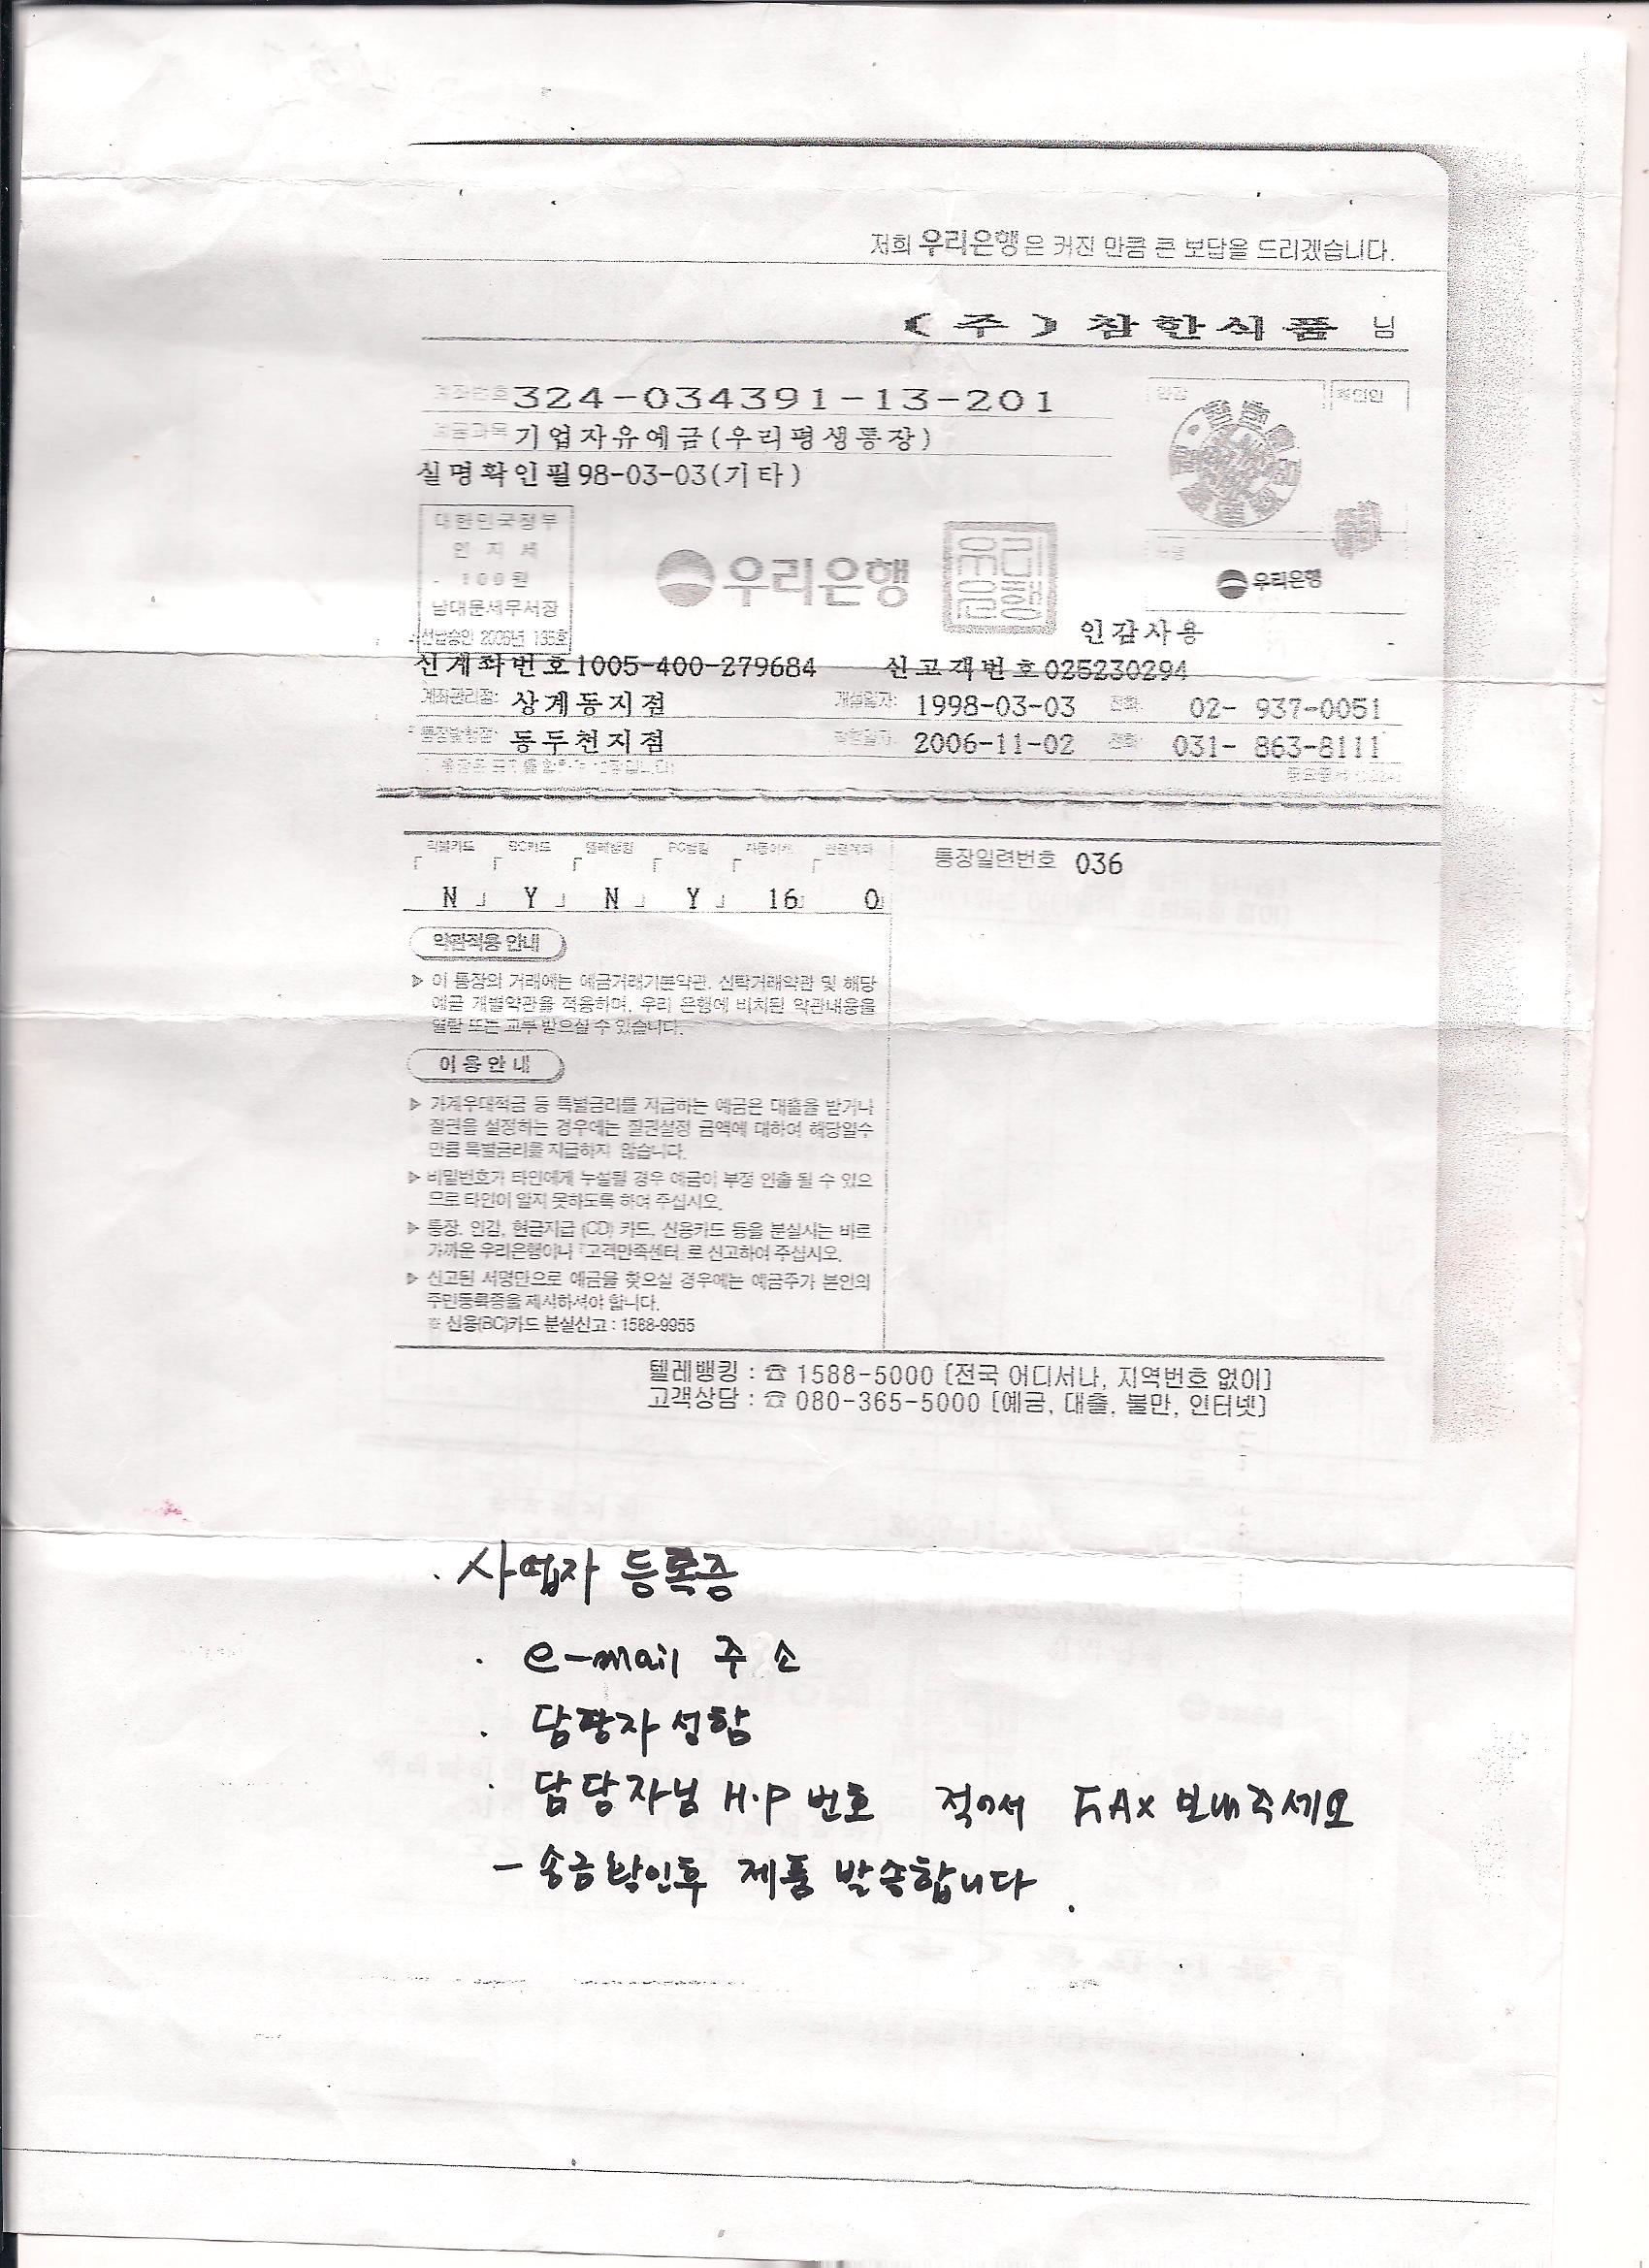 저희 우리은행은 커진 만큼 큰 보답을 드리겠습니다.
(주)참한식품 님
계좌번호 324-034391-13-201
예금과목 기업자유예금(우리평생통장)
실명확인필98-03-03(기타)
대한민국정부
인지세
100원
남대문세무서장
선납승인 2006년 135호
우리은행
우리은행
우리은행
인감사용
신계좌번호1005-400-279684 신고객번호025230294
계좌관리점: 상계동지점 개설일자: 1998-03-03 전화: 02- 937-0051
통장발행점: 동두천지점 2006-11-02 전화: 031- 863-8111
직불카드 BC카드 텔레뱅킹 PC뱅킹 자동이체
N Y N Y 16 0
통장일련번호 036
약관적용 안내
▷ 이 통장의 거래에는 예금거래기본약관, 신탁거래약관 및 해당
예금 개별약관을 적용하며, 우리 은행에 비치된 약관내용을
열람 또는 교부 받으실 수 있습니다.
이 용 안 내
▷ 가계우대적금 등 특별금리를 지급하는 예금은 대출을 받거나
질권을 설정하는 경우에는 질권설정 금액에 대하여 해당일수
만큼 특별금리를 지급하지 않습니다.
▷ 비밀번호가 타인에게 누설될 경우 예금이 부정 인출 될 수 있으
므로 타인이 알지 못하도록 하여 주십시오.
▷ 통장, 인감, 현금지급 (CD) 카드, 신용카드 등을 분실시는 바로
가까운 우리은행이나 「고객만족센터」로 신고하여 주십시오.
▷ 신고된 서명만으로 예금을 찾으실 경우에는 예금주가 본인의
주민등록증을 제시하셔야 합니다.
※ 신용(BC)카드 분실신고 : 1588-9955
텔레뱅킹 : ☎ 1588-5000 [전국 어디서나, 지역번호 없이]
고객상담 : ☎ 080-365-5000 [예금, 대출, 불만, 인터넷]
· 사업자 등록증
· e-mail 주소
· 담당자 성함
· 담당자님 H.P 번호 적어서 FAX 보내주세요
- 송금확인후 제품 발송합니다.